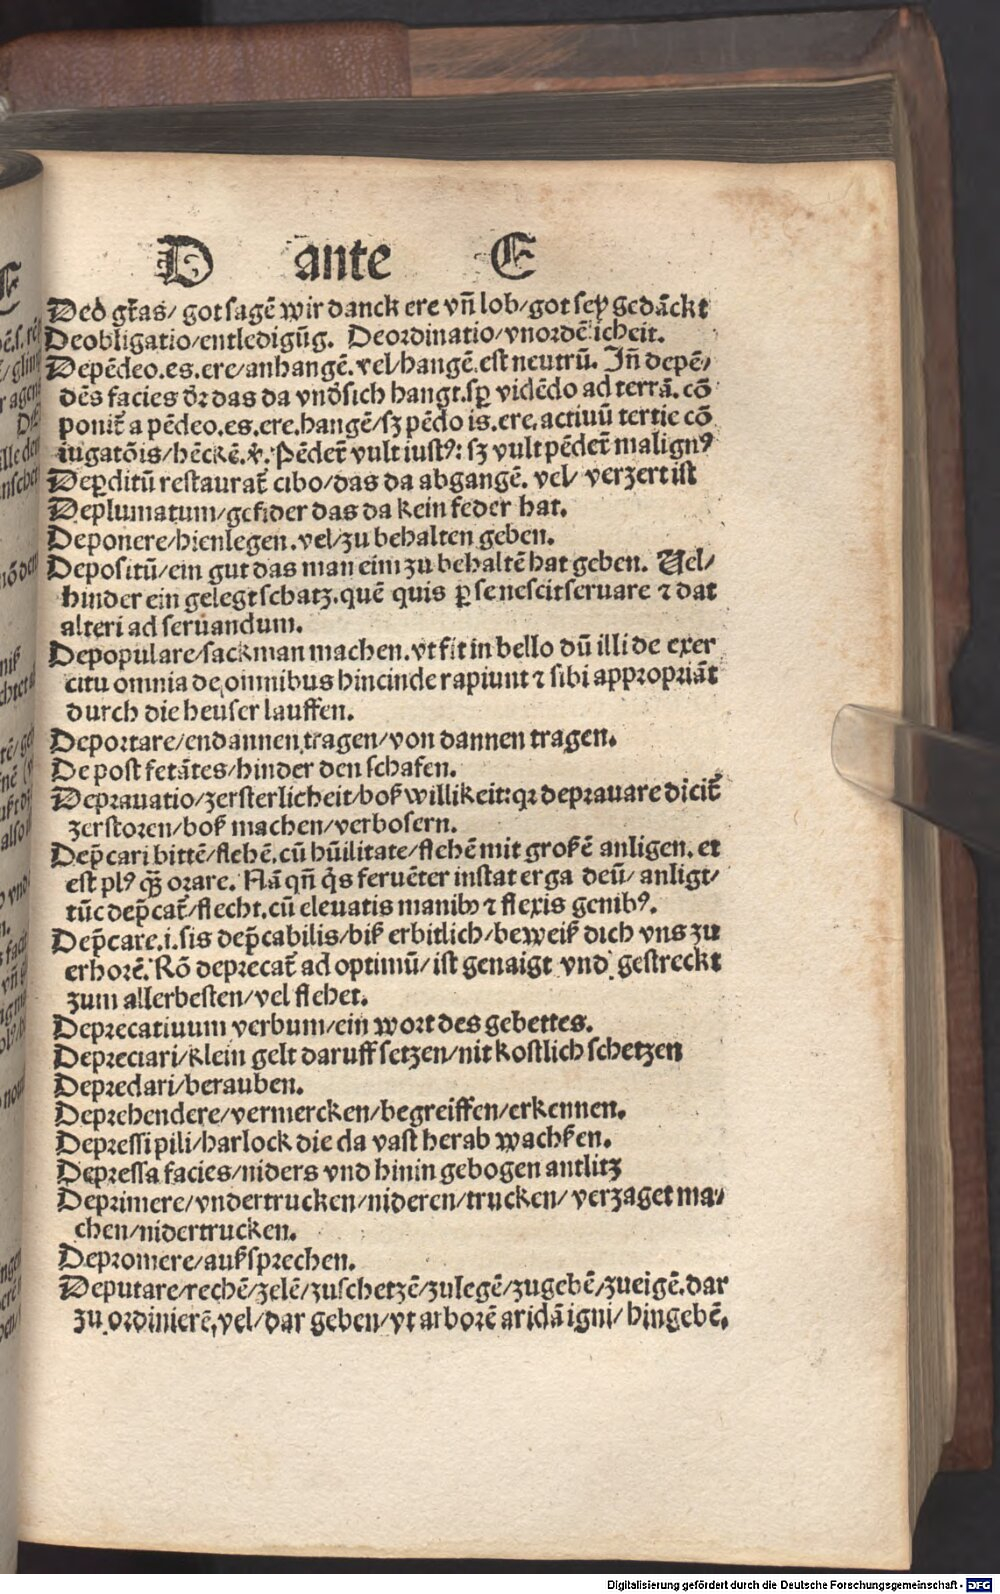 D ante E
Deo gr̃as/ got sagẽ wir danck ere vñ lob/ got sey gedãckt
Deobligatio/entledigũg. Deordinatio/vnordẽlicheit.
Depẽdeo.es.ere/anhangẽ. vel/hangẽ.est neutrũ. Jñ depẽ/
dẽs facies d̕ꝛ das da vnd̕sich hangt.sꝑ vidẽdo ad terrã. cõ
ponit̃ a pẽdeo.es.ere.hangẽ/sꝫ pẽdo is.ere.actiuũ tertie cõ
iugatõis/hẽckẽ.v̕. Pẽdet̃ vult iustꝰ: sꝫ vult pẽdet̃ malignꝰ
Deꝑditũ restaurat̃ cibo/das da abgangẽ. vel/ verzert ist
Deplumatum/gefider das da kein feder hat.
Deponere/hienlegen.vel/zu behalten geben.
Depositũ/ein gut das man eim zu behaltẽ hat geben. Uel/
hinder ein gelegt schatz.quẽ quis ꝑ se nescit seruare ⁊ dat
alteri ad seruandum.
Depopulare/sackman machen.vt fit in bello dũ illi de exer
citu omnia de omnibus hincinde rapiunt ⁊ sibi appropriãt
durch die heuser lauffen.
Deportare/endannen tragen/von dannen tragen.
De post fetãtes/hinder den schafen.
Deprauatio/zersterlicheit/boß willikeit:qꝛ deprauare dicit̃
zerstoren/boß machen/verbosern.
Dep̃cari bittẽ/flehẽ.cũ hũilitate/flehẽ mit großẽ anligen. et
est plꝰ q̃ꝫ orare. Nã qñ q̓s feruẽter instat erga deũ/ anligt/
tũc dep̃cat̃/flecht.cũ eleuatis manibꝰ ⁊ flexis genibꝰ.
Dep̃care.i.sis dep̃cabilis/biß erbitlich/beweiß dich vns zu
erhorẽ. Rõ deprecat̃ ad optimũ/ist genaigt vnd gestreckt
zum allerbesten/vel flehet.
Deprecatiuum verbum/ein wort des gebettes.
Depreciari/klein gelt daruff setzen/nit kostlich schetzen
Depredari/berauben.
Deprehendere/vermercken/begreiffen/erkennen.
Depressi pili/harlock die da vast herab wachßen.
Depressa facies/niders vnd hinin gebogen antlitz
Deprimere/vndertrucken/nideren/trucken/ verzaget ma/
chen/nidertrucken.
Depromere/außsprechen.
Deputare/rechẽ/zelẽ/zuschetzẽ/zulegẽ/zugebẽ/zueigẽ.dar
zu ordinierẽ.vel/dar geben/vt arborẽ aridã igni/hingebẽ.
Digitalisierung gefördert durch die Deutsche Forschungsgemeinschaft - DFG